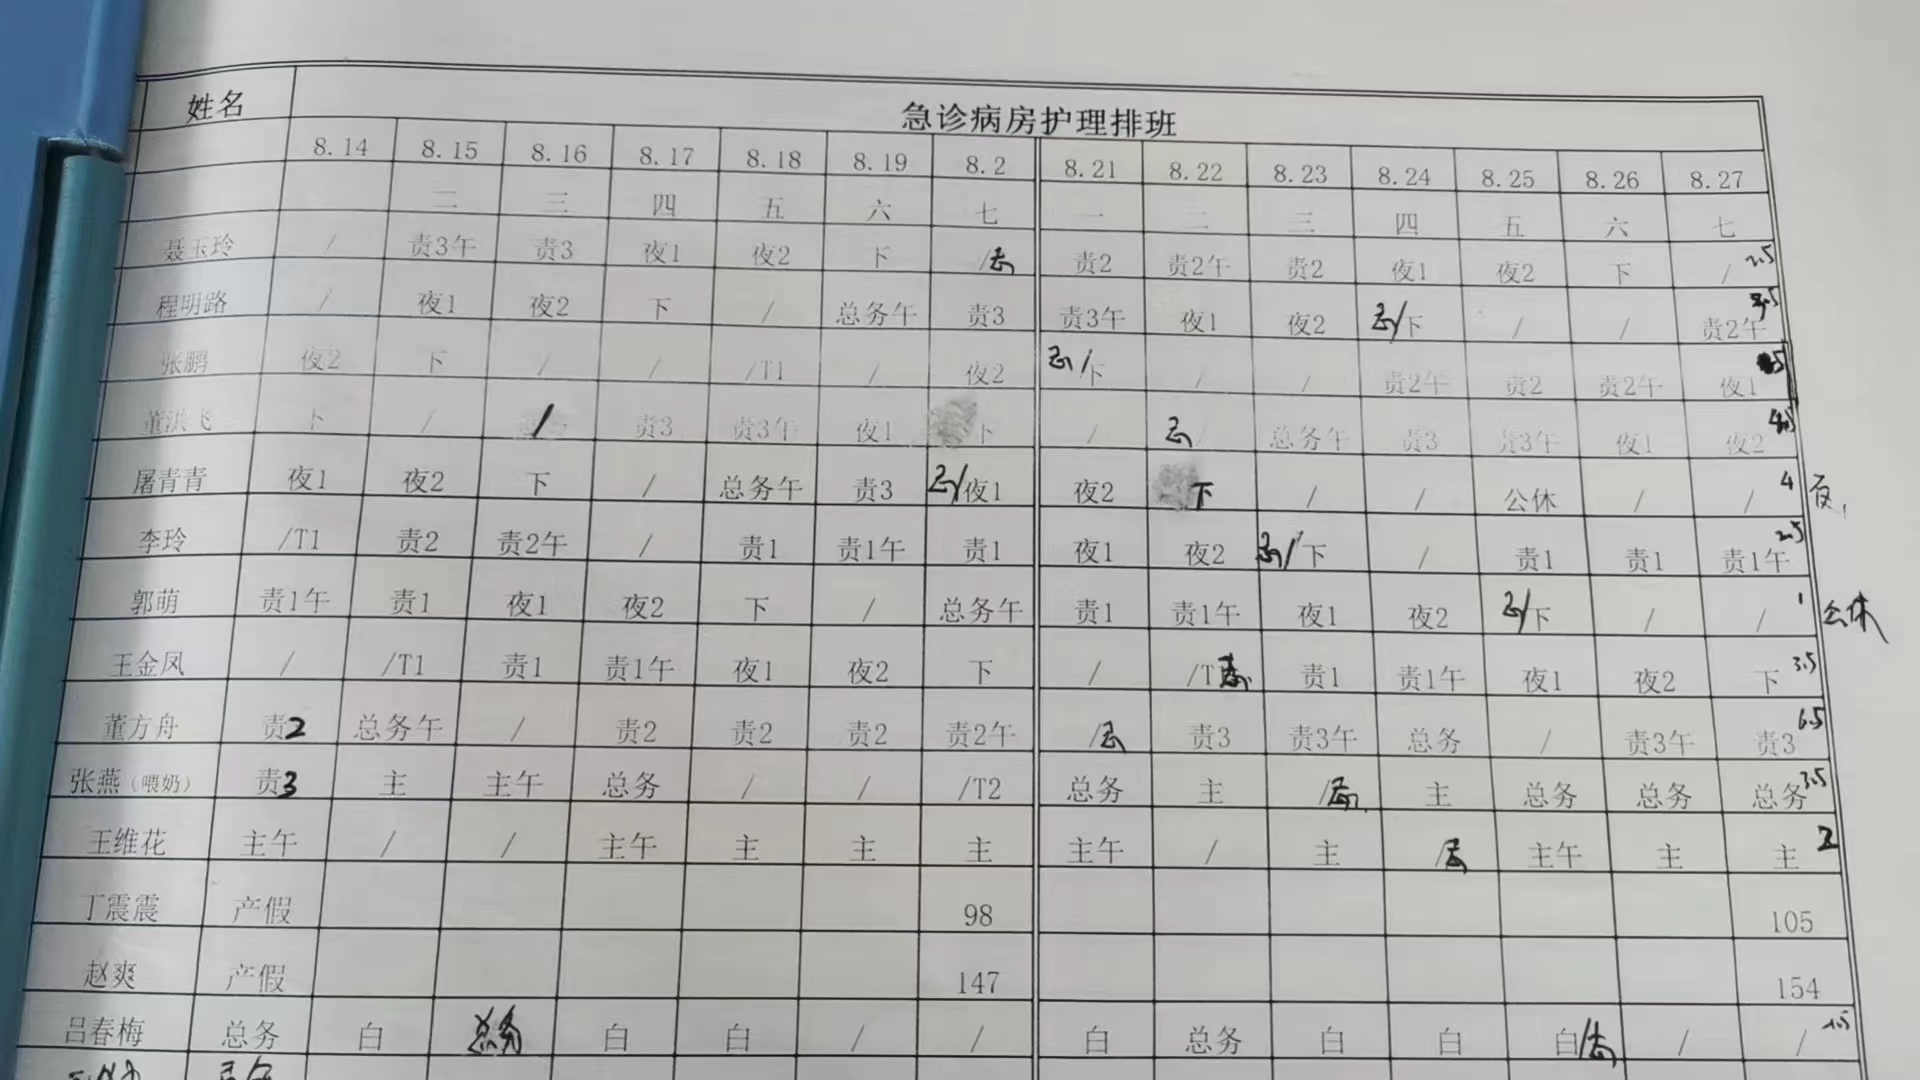 姓名 急诊病房护理排班
8.14 8.15 8.16 8.17 8.18 8.19 8.2 8.21 8.22 8.23 8.24 8.25 8.26 8.27
二 三 四 五 六 七 一 二 三 四 五 六 七
聂玉玲 / 责3午 责3 夜1 夜2 下 / 责2 责2午 责2 夜1 夜2 下 / 2.5
程明路 / 夜1 夜2 下 / 总务午 责3 责3午 夜1 夜2 /下 / / 责2午
张鹏 夜2 下 / / /T1 / 夜2 /下 / / 责2午 责2 责2午 夜1
董洪飞 下 / / 责3 责3午 夜1 下 / / 总务午 责3 责3午 夜1 夜2
屠青青 夜1 夜2 下 / 总务午 责3 /夜1 夜2 下 / / 公休 / / 4
李玲 /T1 责2 责2午 / 责1 责1午 责1 夜1 夜2 /下 / 责1 责1 责1午 2.5
郭萌 责1午 责1 夜1 夜2 下 / 总务午 责1 责1午 夜1 夜2 /下 / / 1 公休
王金凤 / /T1 责1 责1午 夜1 夜2 下 / /T 责1 责1午 夜1 夜2 下 3.5
董方舟 责2 总务午 / 责2 责2 责2 责2午 / 责3 责3午 总务 / 责3午 责3 6.5
张燕(喂奶) 责3 主 主午 总务 / / /T2 总务 主 / 主 总务 总务 总务 3.5
王维花 主午 / / 主午 主 主 主 主午 / 主 / 主午 主 主 2
丁震震 产假 98 105
赵爽 产假 147 154
吕春梅 总务 白 总务 白 白 / / 白 总务 白 白 白/ / / 1.5